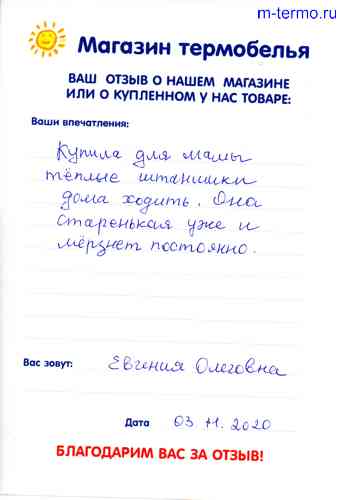 m-termo.ru
Магазин термобелья
ВАШ ОТЗЫВ О НАШЕМ МАГАЗИНЕ
ИЛИ О КУПЛЕННОМ У НАС ТОВАРЕ:
Ваши впечатления:
Купила для мамы
тёплые штанишки
дома ходить. Она
старенькая уже и
мёрзнет постоянно.
Вас зовут: Евгения Олеговна
Дата 03 11. 2020
БЛАГОДАРИМ ВАС ЗА ОТЗЫВ!